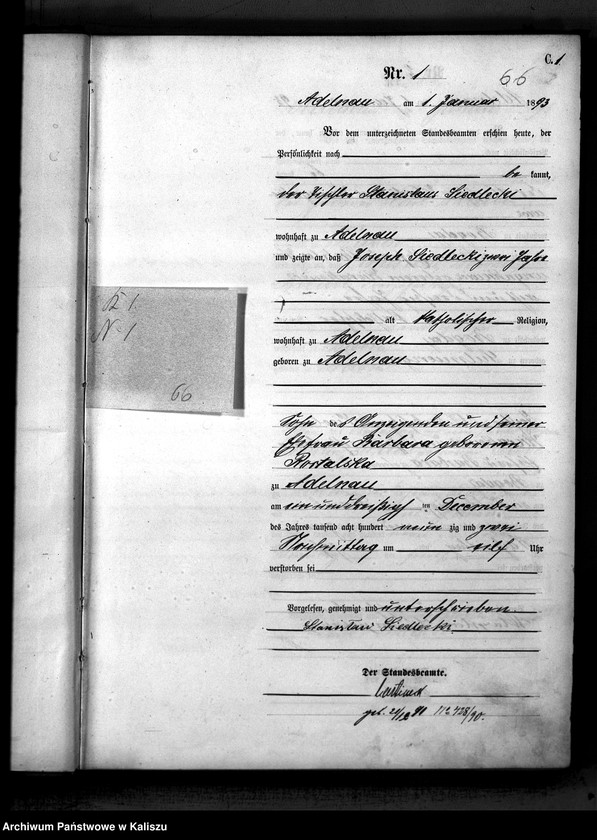 C. 1
Nr. 1
66
Adelnau am 1. Januar 1893
Vor dem unterzeichneten Standesbeamten erschien heute, der
Persönlichkeit nach
be kannt,
der Tischler Stanislaus Siedlecki
wohnhaft zu Adelnau
und zeigte an, daß Joseph Siedlecki zwei Jahre
alt katholischer Religion,
wohnhaft zu Adelnau
geboren zu Adelnau
Sohn des Anzeigenden und seiner
Ehefrau Barbara geborenen
zu Adelnau
am ein und dreißig ten December
des Jahres tausend acht hundert neun zig und zwei
Nachmittag um eilf Uhr
verstorben sei
Vorgelesen, genehmigt und unterschrieben
Stanisław Siedlecki
Der Standesbeamte.
N 1
66
Archiwum Państwowe w Kaliszu